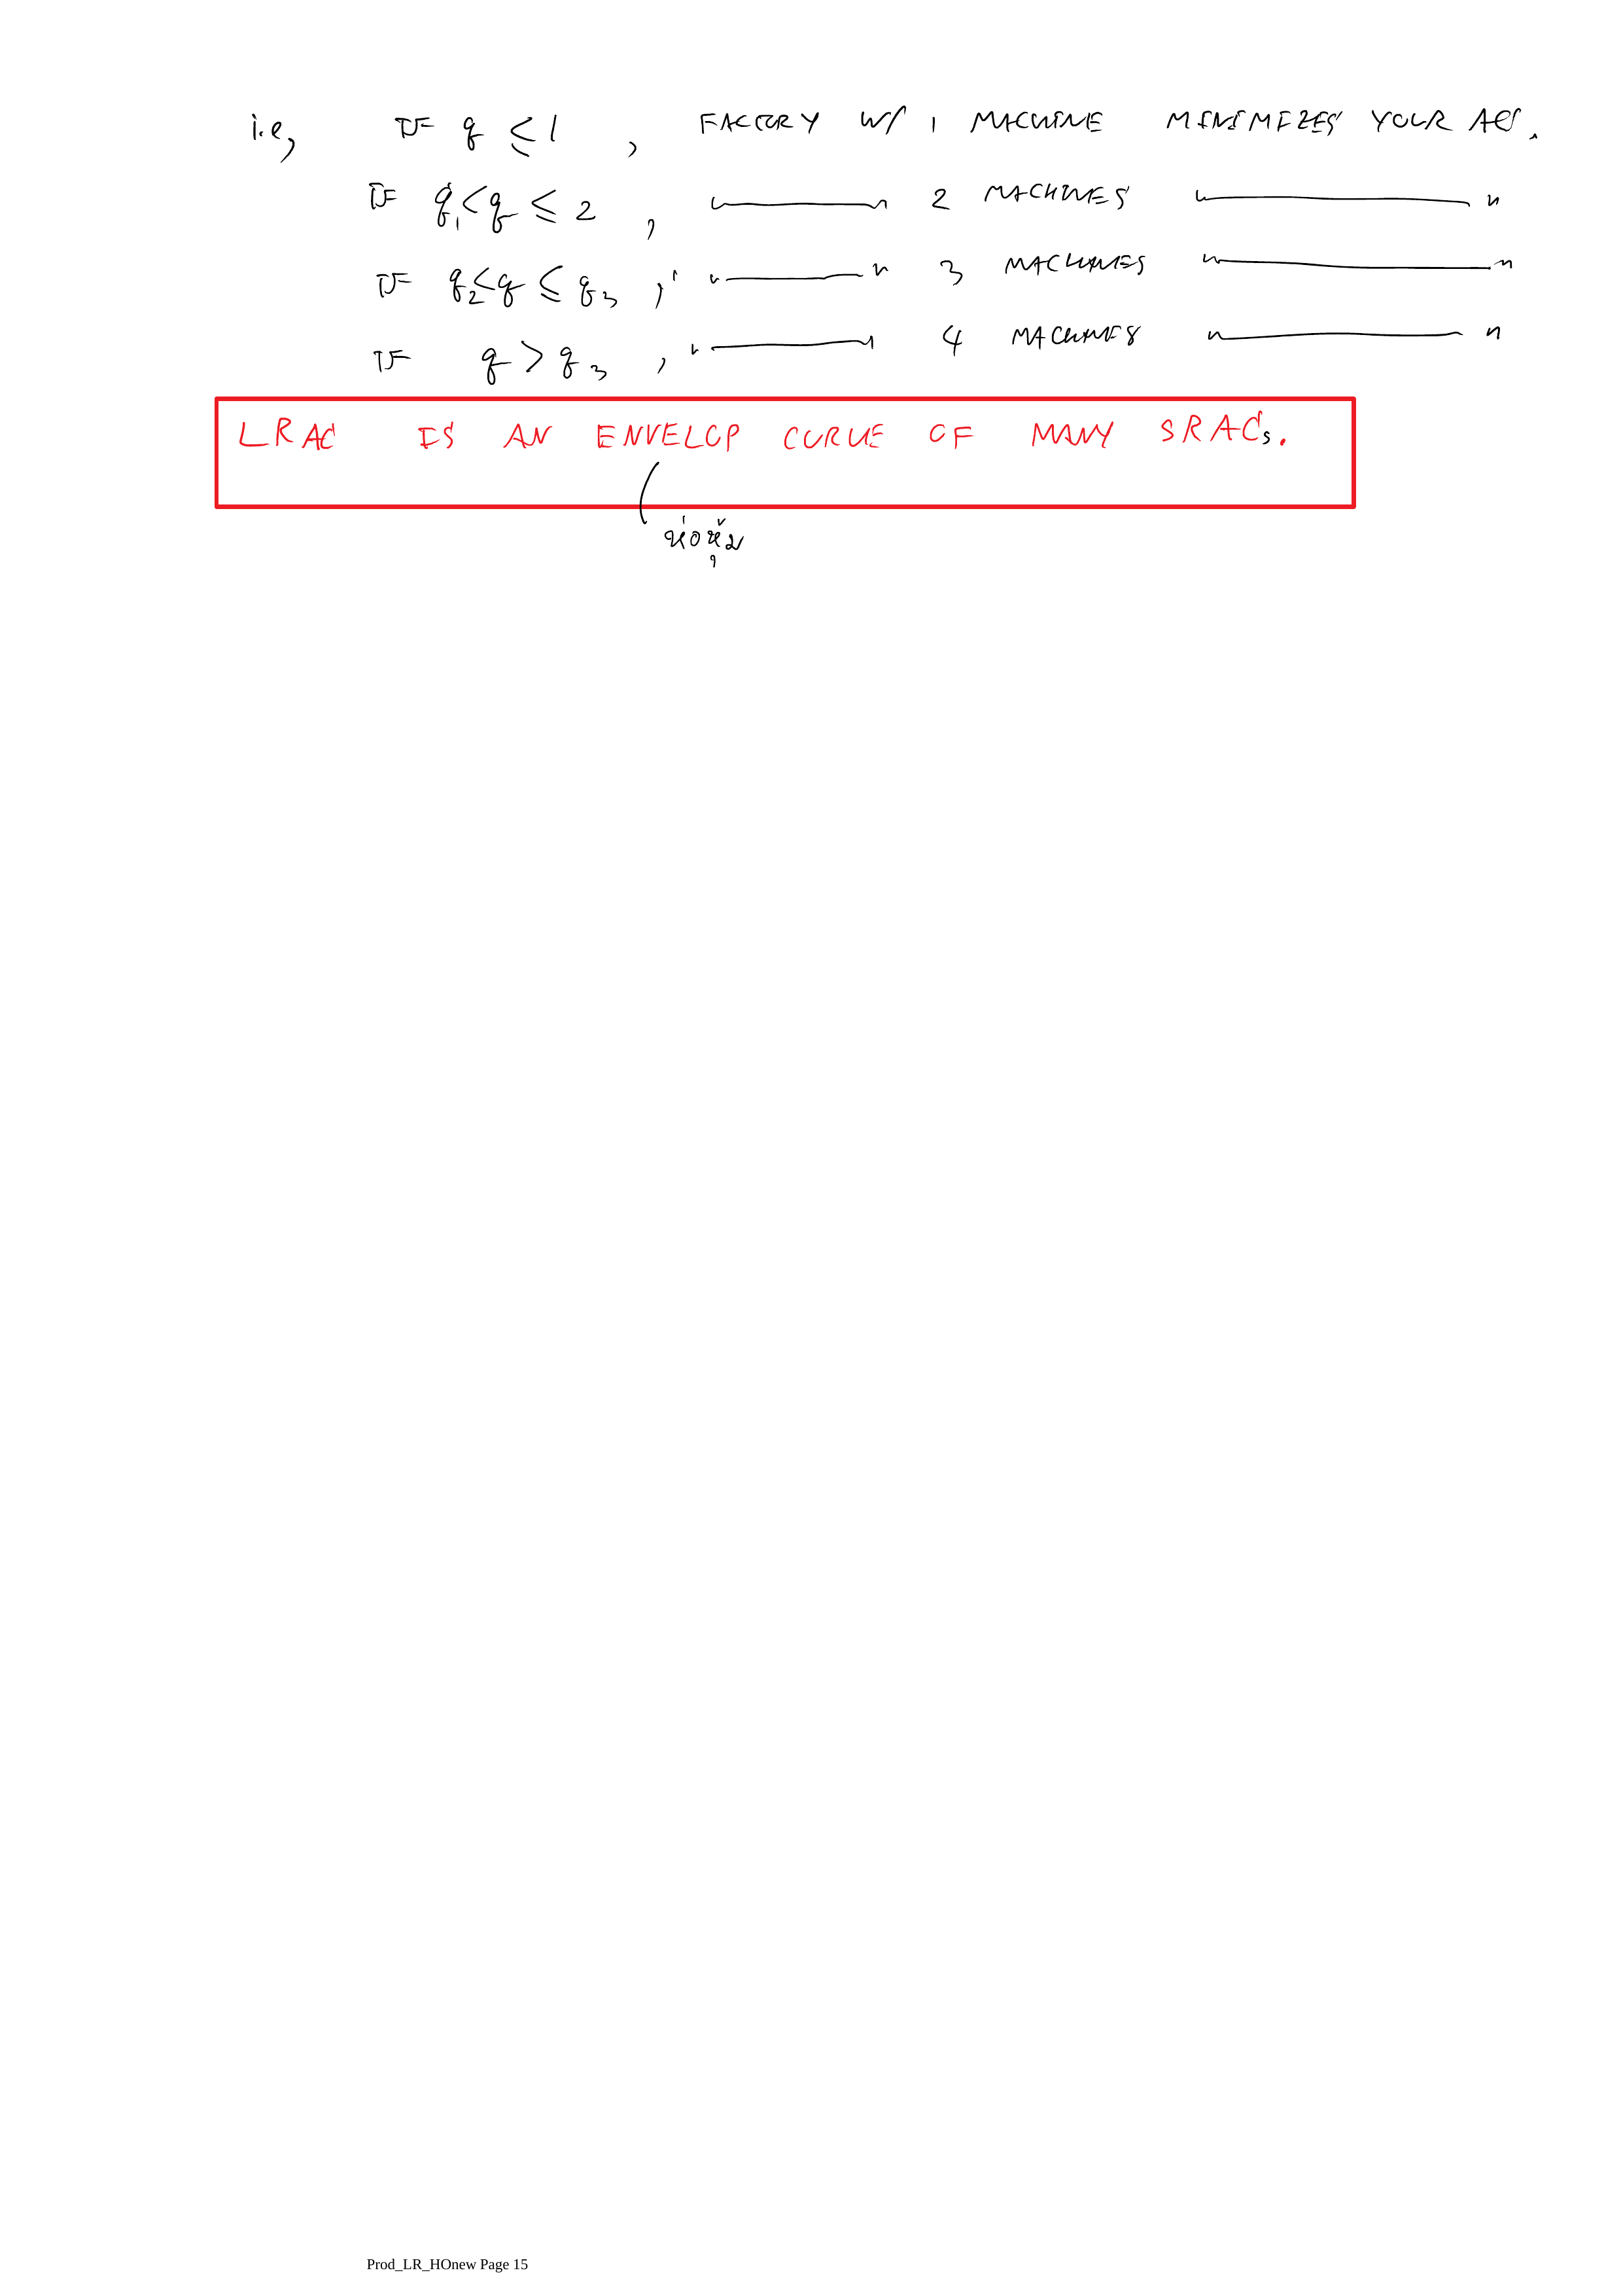 i.e, IF q ≤ 1 , FACTORY W/ 1 MACHINE MINIMIZES YOUR AC.
IF q₁<q ≤ 2 , " 2 MACHINES "
IF q₂<q ≤ q₃ , " 3 MACHINES "
IF q > q₃ , " 4 MACHINES "
LRAC IS AN ENVELOP CURVE OF MANY SRACs.
ห่อหุ้ม
Prod_LR_HOnew Page 15